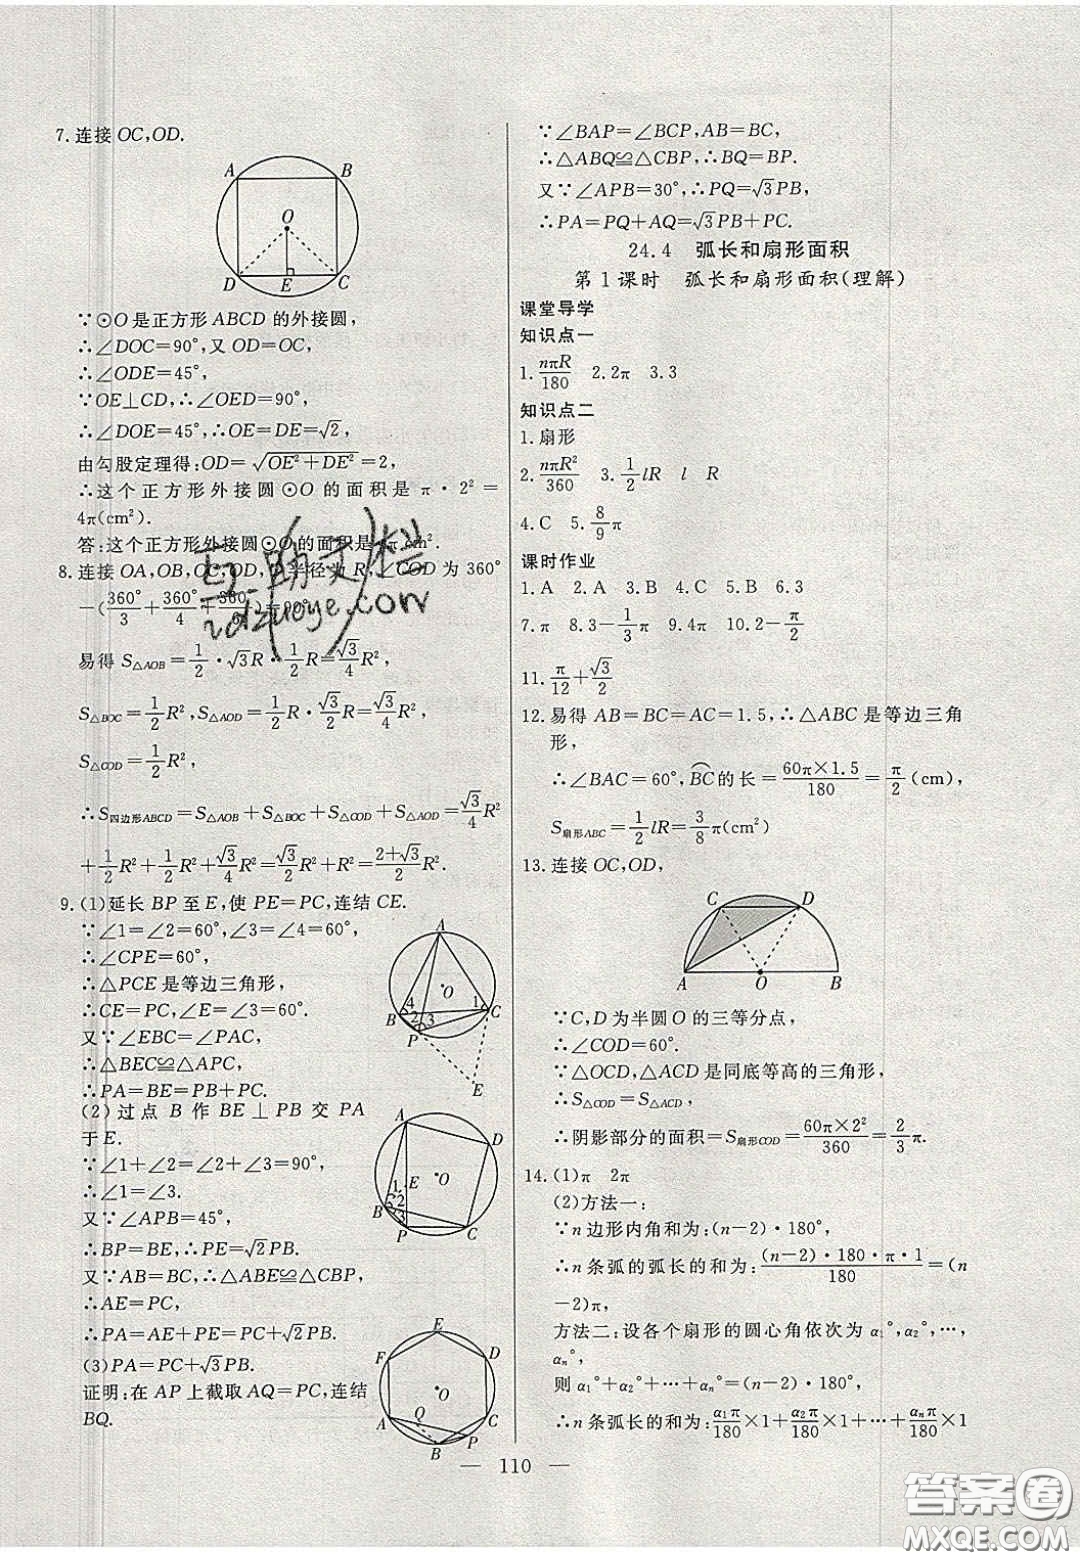 7.连接OC,OD.
A B
O
D E C
∵⊙O是正方形ABCD的外接圆,
∴∠DOC=90°,又OD=OC,
∴∠ODE=45°,
∵OE⊥CD,∴∠OED=90°,
∴∠DOE=45°,∴OE=DE=√2,
由勾股定理得:OD=√(OE²+DE²)=2,
∴这个正方形外接圆⊙O的面积是π·2²=
4π(cm²).
答:这个正方形外接圆⊙O的面积是4π cm².
8.连接OA,OB,OC,OD,半径为R,∠COD为360°
-(360°/3+360°/4+360°/6)=90°
易得S△AOB=1/2·√3R·1/2R=√3/4R²,
S△BOC=1/2R²,S△AOD=1/2R·√3/2R=√3/4R²,
S△COD=1/2R²,
∴S四边形ABCD=S△AOB+S△BOC+S△COD+S△AOD=√3/4R²
+1/2R²+1/2R²+√3/4R²=√3/2R²+R²=(2+√3)/2R².
9.(1)延长BP至E,使PE=PC,连结CE.
∵∠1=∠2=60°,∠3=∠4=60°,
∴∠CPE=60°,
∴△PCE是等边三角形,
∴CE=PC,∠E=∠3=60°.
又∵∠EBC=∠PAC,
∴△BEC≌△APC,
∴PA=BE=PB+PC.
A
O
4 1
B 2 3 C
P
E
(2)过点B作BE⊥PB交PA
于E.
∵∠1+∠2=∠2+∠3=90°,
∴∠1=∠3.
又∵∠APB=45°,
∴BP=BE,∴PE=√2PB.
又∵AB=BC,∴△ABE≌△CBP,
∴AE=PC,
∴PA=AE+PE=PC+√2PB.
A
D
1 E O
B 2
3
P C
(3)PA=PC+√3PB.
证明:在AP上截取AQ=PC,连结
BQ.
E
F D
O
Q
A C
B P
∵∠BAP=∠BCP,AB=BC,
∴△ABQ≌△CBP,∴BQ=BP.
又∵∠APB=30°,∴PQ=√3PB,
∴PA=PQ+AQ=√3PB+PC.
24.4 弧长和扇形面积
第1课时 弧长和扇形面积(理解)
课堂导学
知识点一
1.nπR/180 2.2π 3.3
知识点二
1.扇形
2.nπR²/360 3.1/2lR l R
4.C 5.8/9π
课时作业
1.A 2.A 3.B 4.C 5.B 6.3
7.π 8.3-1/3π 9.4π 10.2-π/2
11.π/12+√3/2
12.易得AB=BC=AC=1.5,∴△ABC是等边三角
形,
∴∠BAC=60°,BC⌒的长=60π×1.5/180=π/2(cm),
S扇形ABC=1/2lR=3/8π(cm²)
13.连接OC,OD,
C D
A O B
∵C,D为半圆O的三等分点,
∴∠COD=60°.
∵△OCD,△ACD是同底等高的三角形,
∴S△COD=S△ACD,
∴阴影部分的面积=S扇形COD=60π×2²/360=2/3π.
14.(1)π 2π
(2)方法一:
∵n边形内角和为:(n-2)·180°,
∴n条弧的弧长的和为:(n-2)·180·π·1/180=(n
-2)π,
方法二:设各个扇形的圆心角依次为α₁°,α₂°,…,
αₙ°,
则α₁°+α₂°+…+αₙ°=(n-2)·180°,
∴n条弧长的和为:α₁π/180×1+α₂π/180×1+…+αₙπ/180×1
— 110 —
互助文档
idzuoye.com
答案圈
MXQE.COM